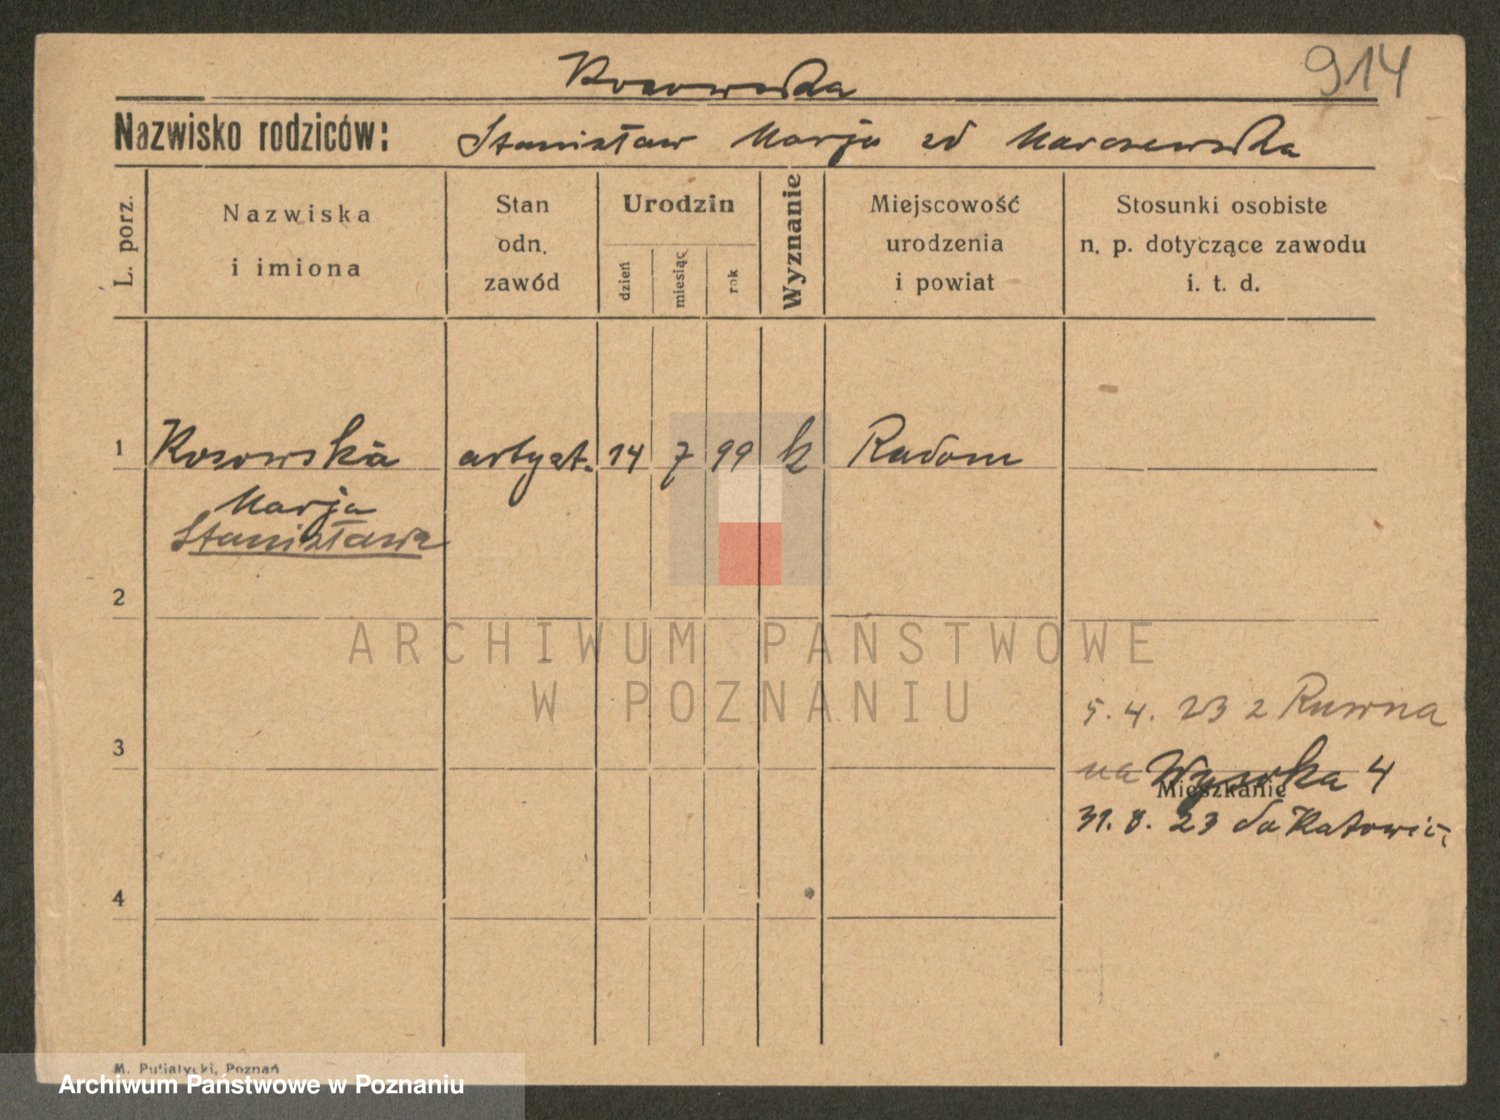 Kosowska
914
Nazwisko rodziców: Stanisław Marja zd Marczewska
L. porz.
Nazwiska
i imiona
Stan
odn.
zawód
Urodzin
dzień
miesiąc
rok
Wyznanie
Miejscowość
urodzenia
i powiat
Stosunki osobiste
n. p. dotyczące zawodu
i. t. d.
1 Kosowska artyst. 14 7 99 k Radom
Marja
Stanisława
2
ARCHIWUM PAŃSTWOWE
W POZNANIU
5. 4. 23 z Ruwna
3
na Wysoka 4
Mieszkanie
31. 8. 23 do Katowic
4
M. Putiatycki, Poznań
Archiwum Państwowe w Poznaniu